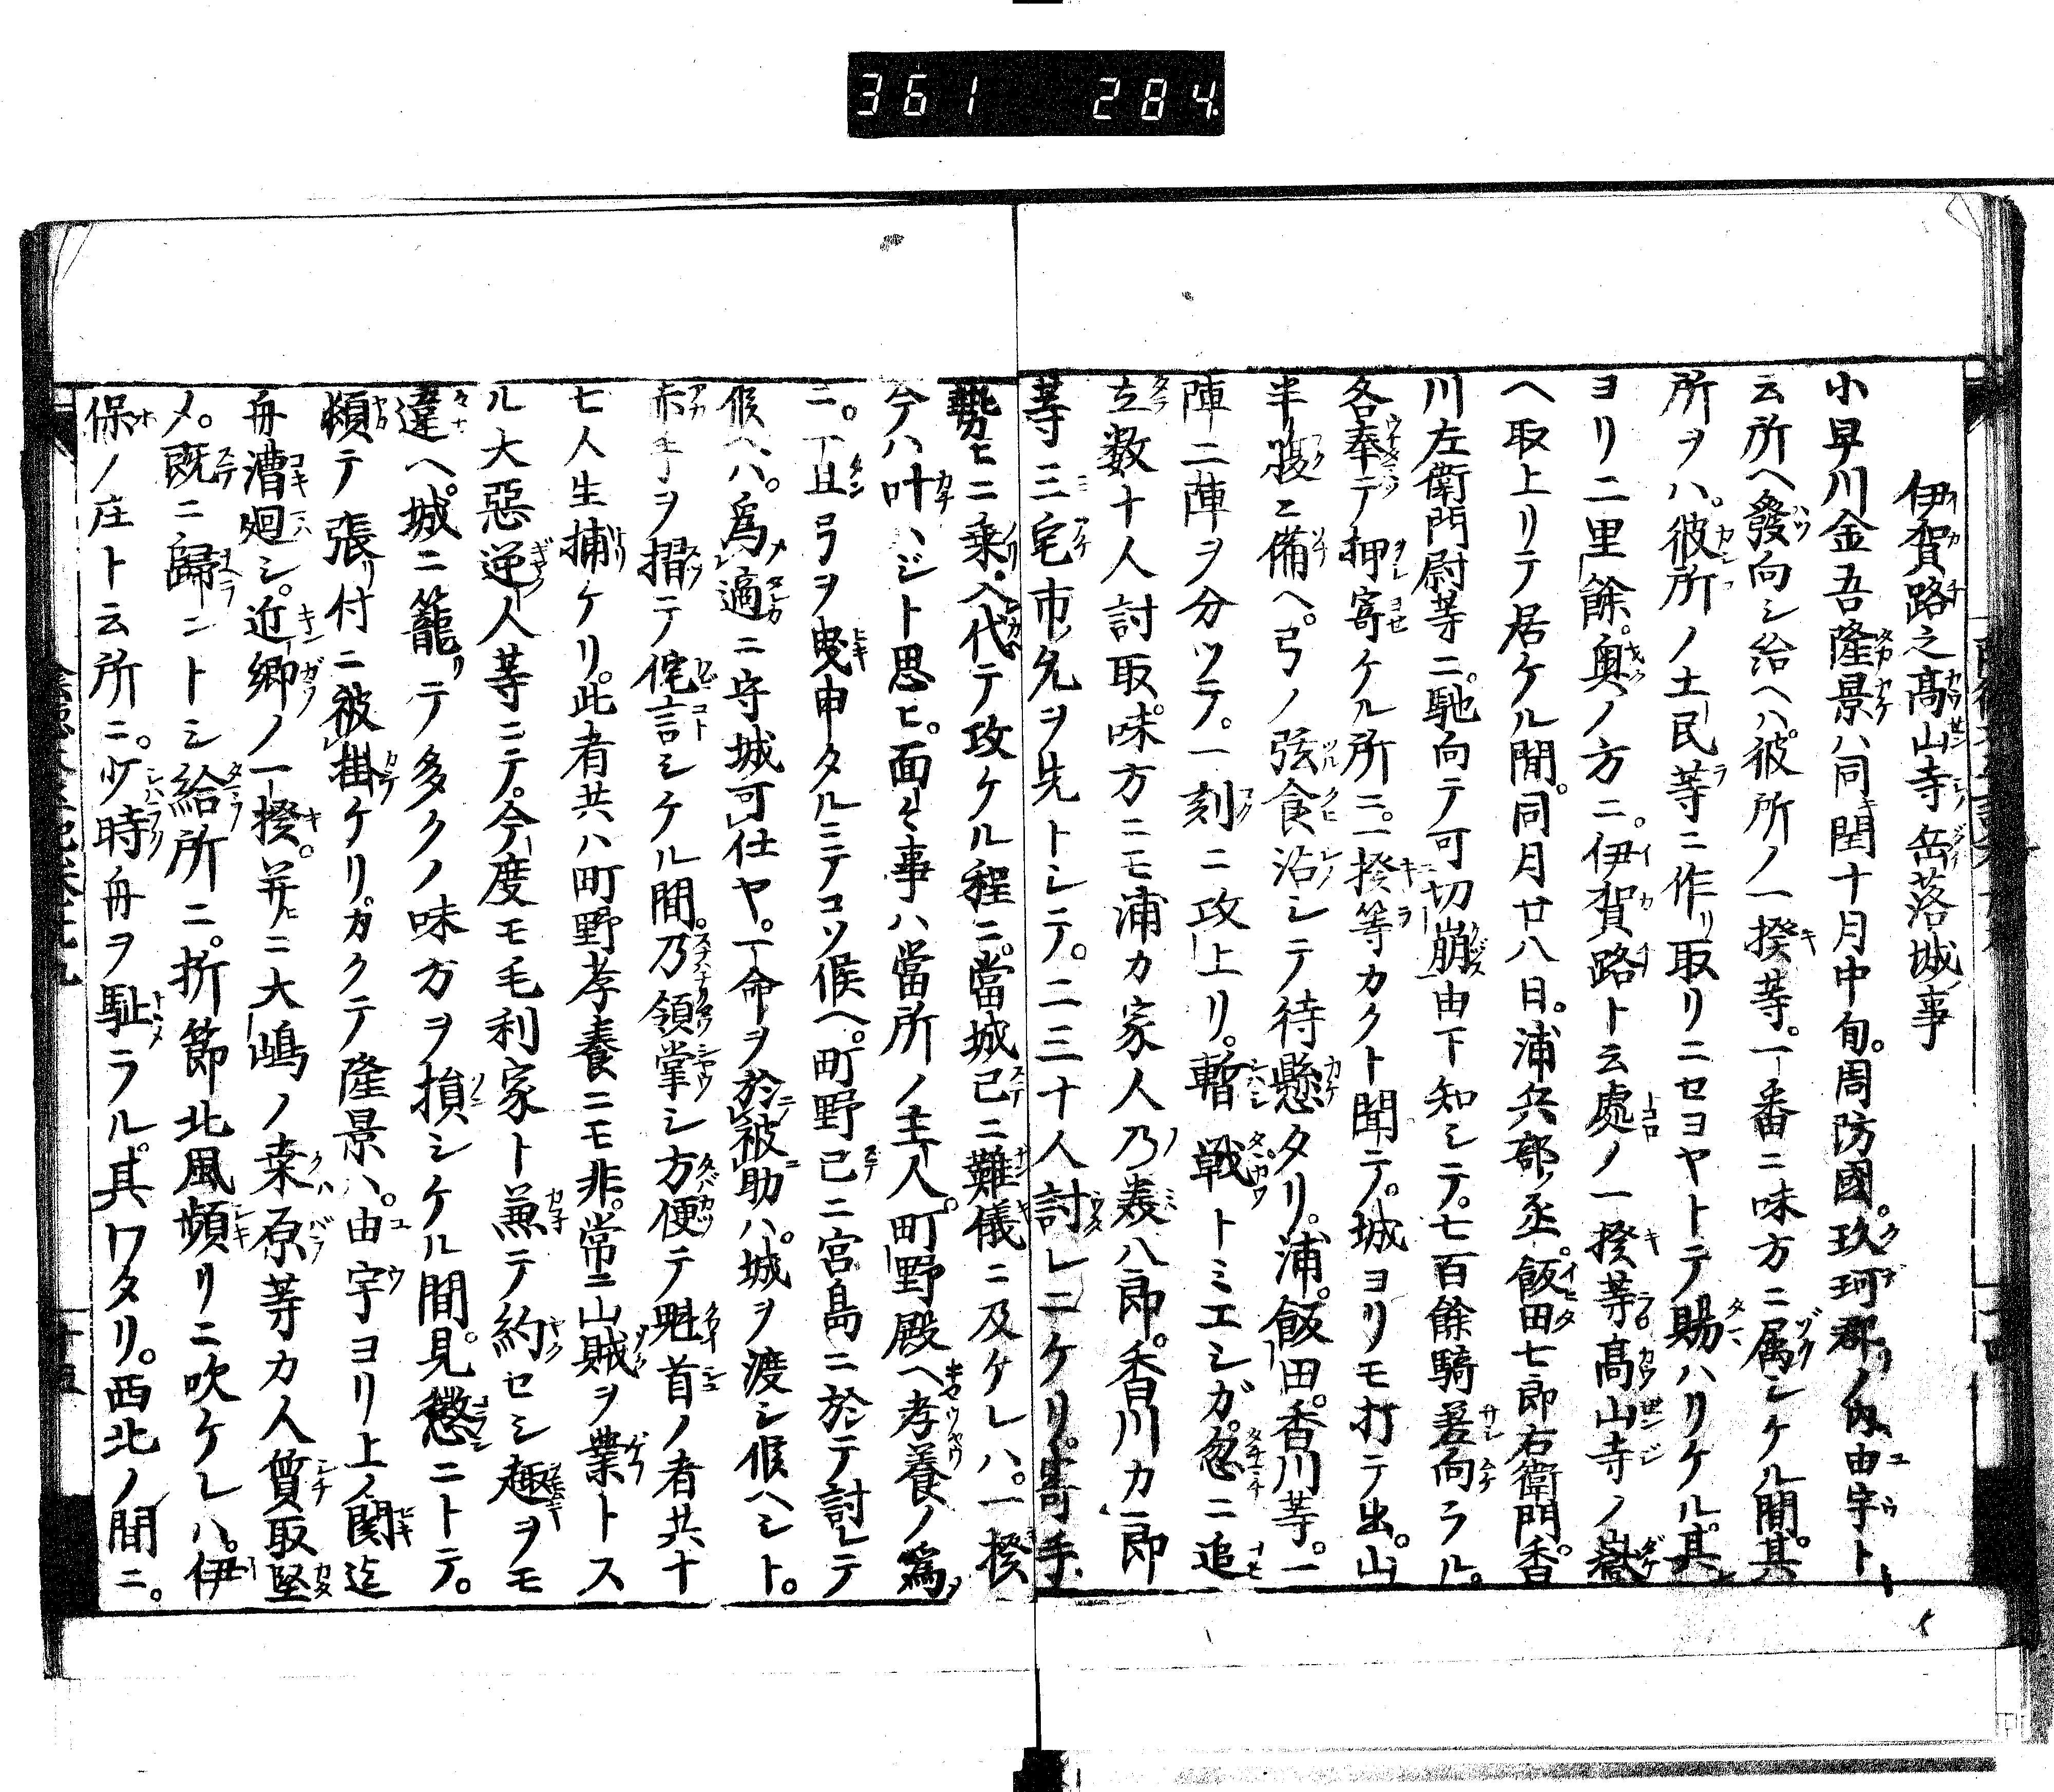 361 284.
伊賀路之髙山寺岳落城事
小早川金吾隆景ハ同閏十月中旬。周防國。玖珂郡ノ内由宇ト
云所ヘ發向シ給ヘハ。彼所ノ一揆等。一番ニ味方ニ属シケル間。其
所ヲハ。彼所ノ土民等ニ作リ取リニセヨヤトテ賜ハリケル。其
ヨリ二里餘。奥ノ方ニ。伊賀路ト云處ノ一揆等髙山寺ノ嶽
ヘ取上リテ居ケル間。同月廿八日。浦兵部丞。飯田七郎右衛門。香
川左衛門尉等ニ。馳向テ可切崩由下知シテ。七百餘騎差向ラル。
各奉テ押寄ケル所ニ。一揆等カクト聞テ。城ヨリモ打テ出。山
半腹ニ備ヘ。弓ノ弦食沾シテ待懸タリ。浦。飯田。香川等。一
陣二陣ヲ分ツテ。一刻ニ攻上リ。暫戦トミエシガ。忽ニ追
立数十人討取。味方ニモ浦カ家人乃美八郎。香川カ郎
等三宅市允ヲ先トシテ。二三十人討レニケリ。寄手
勢モニ乗。入代テ攻ケル程ニ。當城已ニ難儀ニ及ケレハ。一揆
今ハ叶ハジト思ヒ。面々事ハ當所ノ主人。町野殿ヘ孝養ノ爲
ニ。一且弓ヲ曳申タルニテコソ候ヘ。町野已ニ宮島ニ於テ討レテ
候ヘハ。爲適ニ守城可仕ヤ。一命ヲ於被助ハ。城ヲ渡シ候ヘシト。
赤手ヲ摺テ侘言シケル間。乃領掌シ方便テ魁首ノ者共十
七人生捕ケリ。此者共ハ町野孝養ニモ非。常ニ山賊ヲ業トス
ル大惡逆人等ニテ。今度モ毛利家ト兼テ約セシ趣ヲモ
違ヘ。城ニ籠リテ多クノ味方ヲ損シケル間。見懲ニトテ。
頓テ張付ニ被掛ケリ。カクテ隆景ハ。由宇ヨリ上ノ関迄
舟漕廻シ。近郷ノ一揆。并ニ大嶋ノ桒原等カ人質取堅
メ。既ニ歸ントシ給所ニ。折節北風頻リニ吹ケレハ。伊
保ノ庄ト云所ニ。少時舟ヲ駐ラル。其ワタリ。西北ノ間ニ。